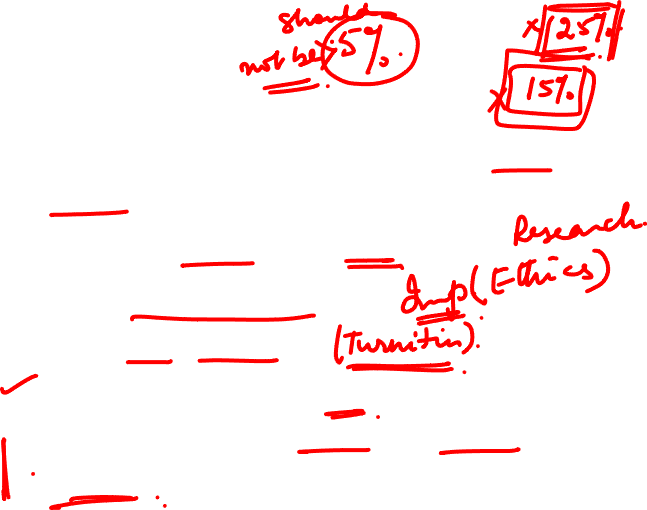 should
not be > 5%.
x 25%.
x 15%.
Research
Imp (Ethics)
(Turnitin).